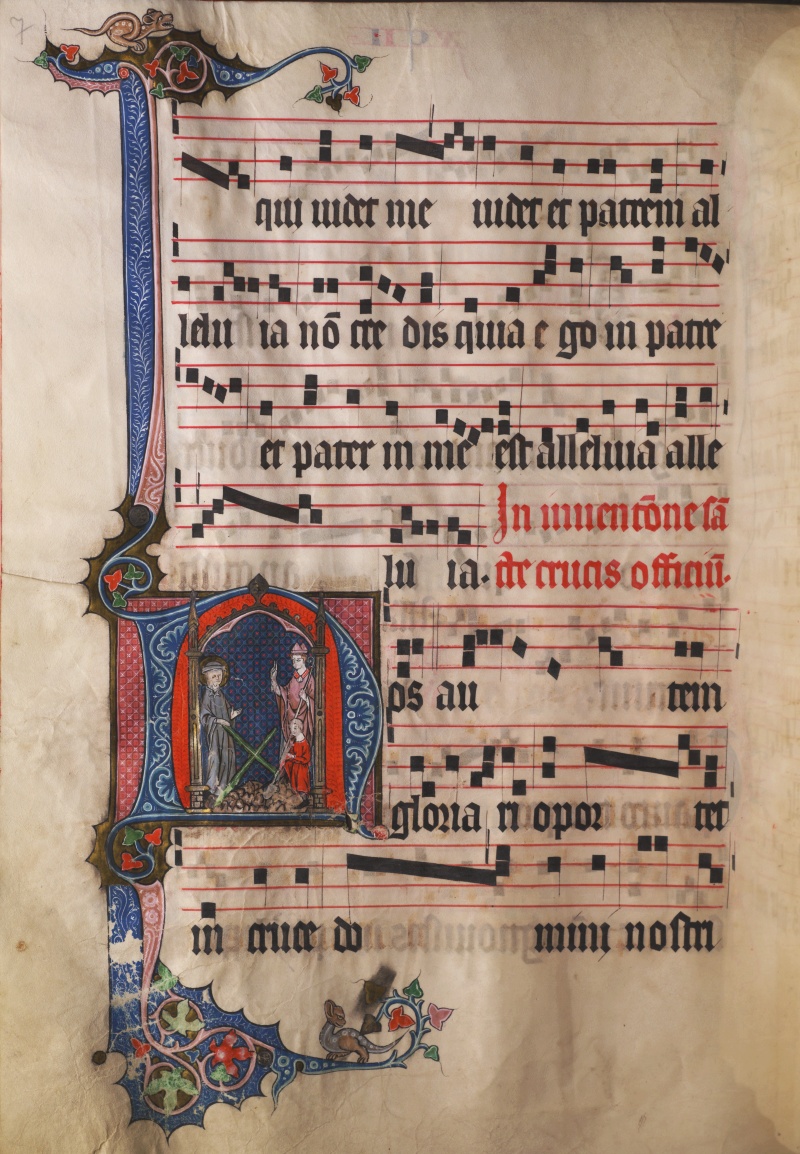 7
qui uidet me uidet et patrem al
lelu ia nō cre dis quia e go in patre
et pater in me est alleluia alle
In inuentōne sā
lu ia. cte crucis officiū.
Nos au tem
gloria ri opor tet
in cruce do mini nostri